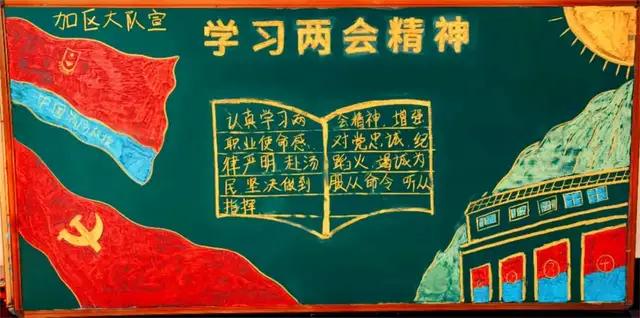 加区大队宣
学习两会精神
中国
认真学习两 会精神.增强
职业使命感. 对党忠诚.纪
律严明.赴汤 蹈火.竭诚为
民.坚决做到 服从命令 听从
指挥